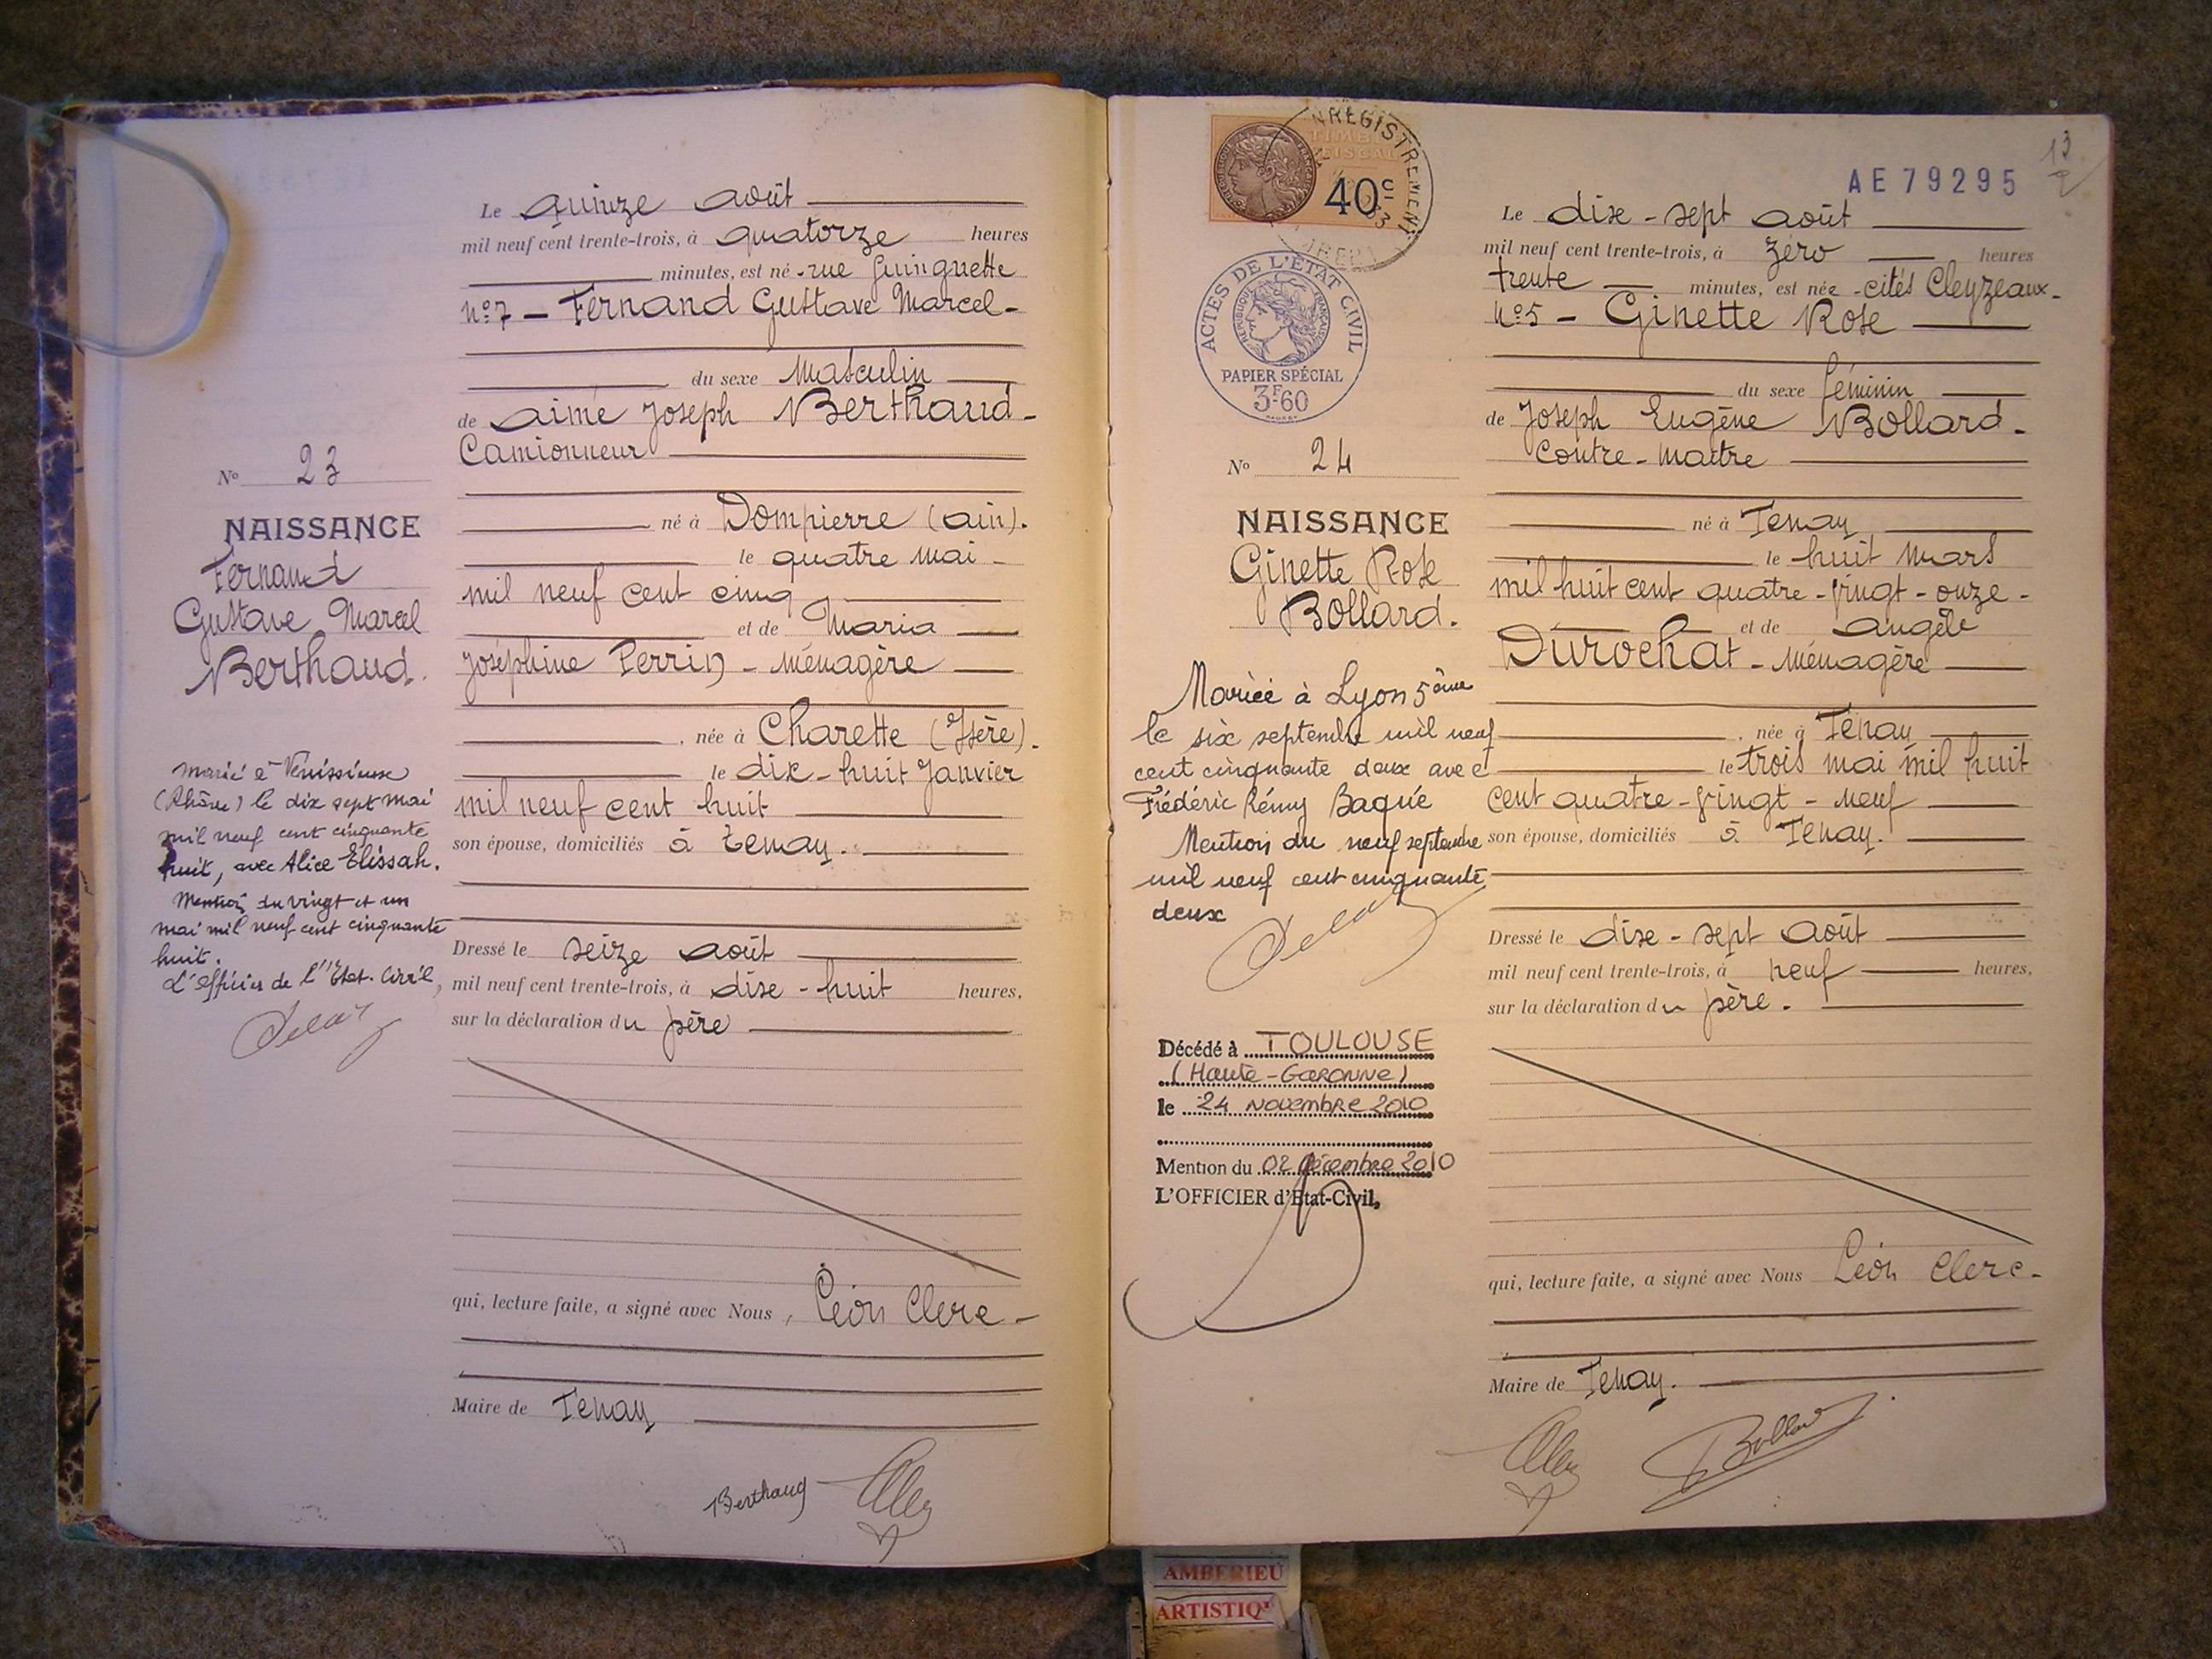 Le quinze août
mil neuf cent trente-trois, à quatorze heures
minutes, est né rue Guinguette
N° 7 – Fernand Gustave Marcel –
du sexe Masculin
de Aimé Joseph Berthaud –
Camionneur
né à Dompierre (Ain).
le quatre mai –
mil neuf cent cinq
et de Maria
Joséphine Perrin – Ménagère
, née à Charette (Isère).
le dix-huit Janvier
mil neuf cent huit
son épouse, domiciliés à Tenay.
Dressé le seize août
mil neuf cent trente-trois, à dix-huit heures,
sur la déclaration du père
qui, lecture faite, a signé avec Nous, Léon Clerc –
Maire de Tenay
Berthaud
N° 23
NAISSANCE
Fernand
Gustave Marcel
Berthaud.
Marié à Venissieux
(Rhône) le dix sept mai
mil neuf cent cinquante
huit, avec Alice Elissah.
Mention du vingt et un
mai mil neuf cent cinquante
huit.
L'officier de l'Etat-Civil,
ENREGISTREMENT
TIMBRE
FISCAL
40c
ACTES DE L'ÉTAT CIVIL
RÉPUBLIQUE FRANÇAISE
PAPIER SPÉCIAL
3F60
13
AE79295
N° 24
NAISSANCE
Ginette Rose
Bollard.
Mariée à Lyon 5ème
le six septembre mil neuf
cent cinquante deux avec
Frédéric Rémy Baqué
Mention du neuf septembre
mil neuf cent cinquante
deux
Décédé à TOULOUSE
(Haute-Garonne)
le 24 novembre 2010
Mention du 02 décembre 2010
L'OFFICIER d'Etat-Civil,
Le dix-sept août
mil neuf cent trente-trois, à zéro heures
trente minutes, est née cités Cleyzeaux –
N° 5 – Ginette Rose
du sexe féminin
de Joseph Eugène Bollard –
Contre-maître
né à Tenay
le huit mars
mil huit cent quatre-vingt-onze –
et de Angèle
Durochat – Ménagère
, née à Tenay
le trois mai mil huit
cent quatre-vingt-neuf
son épouse, domiciliés à Tenay.
Dressé le dix-sept août
mil neuf cent trente-trois, à neuf heures,
sur la déclaration du père.
qui, lecture faite, a signé avec Nous Léon Clerc –
Maire de Tenay.
Bollard
AMBERIEU
ARTISTIQ